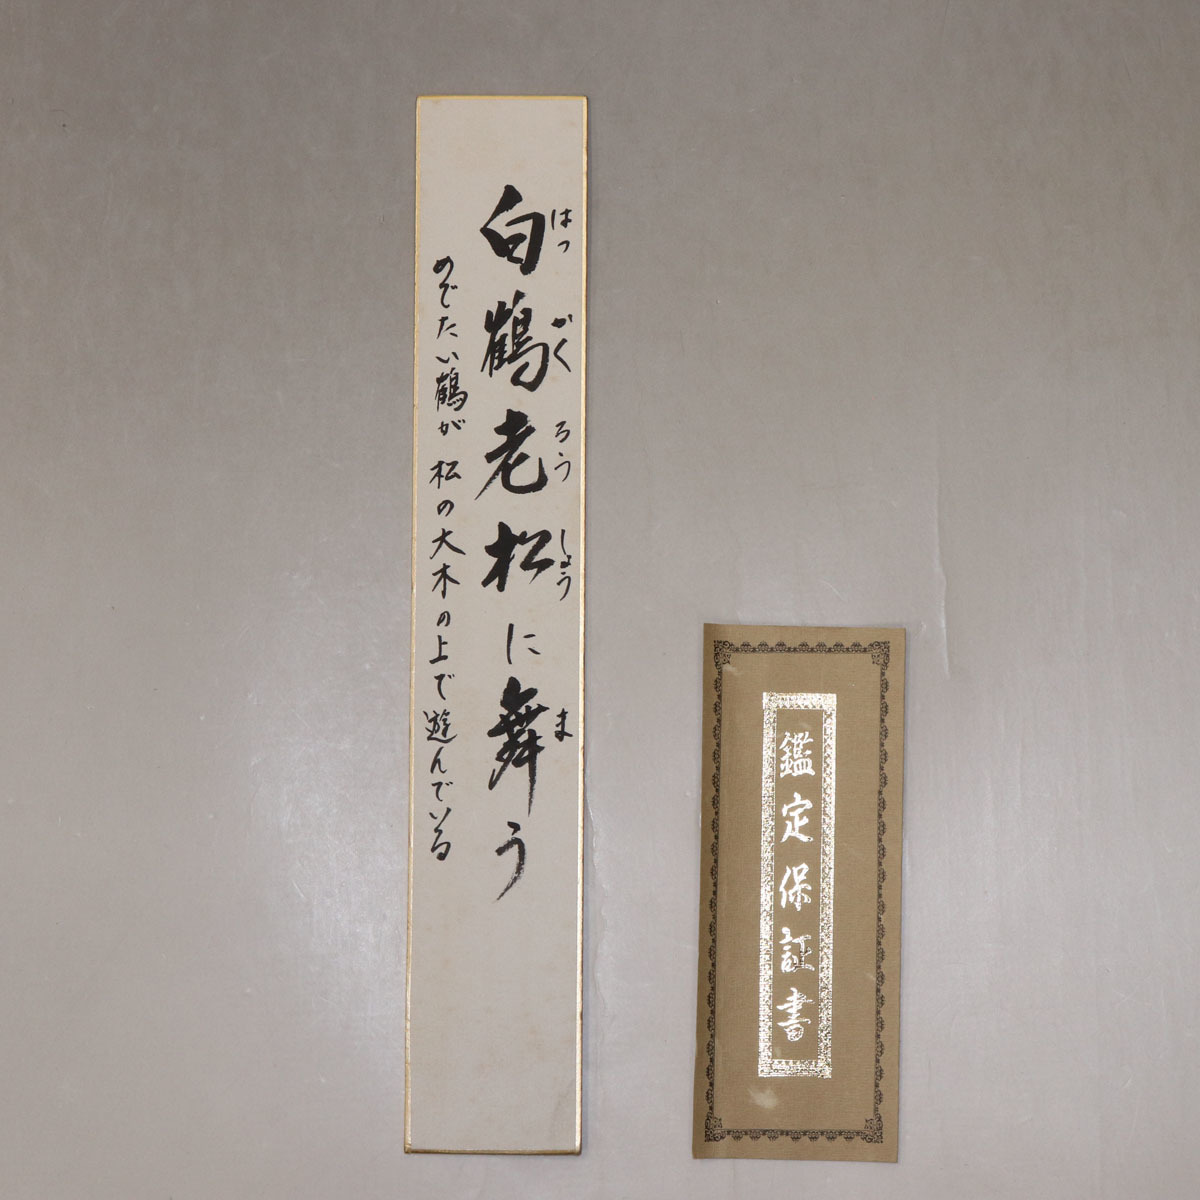 白鶴老松に舞う
はっかくろうしょうま
めでたい鶴が松の大木の上で遊んでいる
鑑定保証書